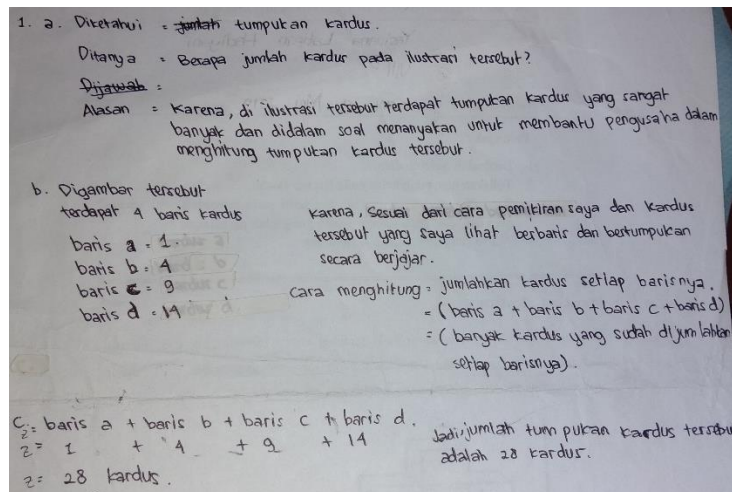 1. a. Diketahui = jumlah tumpukan kardus.
Ditanya = Berapa jumlah kardus pada ilustrasi tersebut?
Dijawab :
Alasan = Karena, di ilustrasi tersebut terdapat tumpukan kardus yang sangat
banyak dan didalam soal menanyakan untuk membantu pengusaha dalam
menghitung tumpukan kardus tersebut.
b. Digambar tersebut
terdapat 4 baris kardus
baris a = 1.
baris b = 4
baris c = 9
baris d = 14
Karena, Sesuai dari cara pemikiran saya dan kardus
tersebut yang saya lihat berbaris dan bertumpukan
secara berjajar.
Cara menghitung = jumlahkan kardus setiap barisnya.
= (baris a + baris b + baris c + baris d)
= (banyak kardus yang sudah dijumlahkan
setiap barisnya).
C. z = baris a + baris b + baris c + baris d.
z = 1 + 4 + 9 + 14
z = 28 kardus.
Jadi, jumlah tumpukan kardus tersebu
adalah 28 kardus.